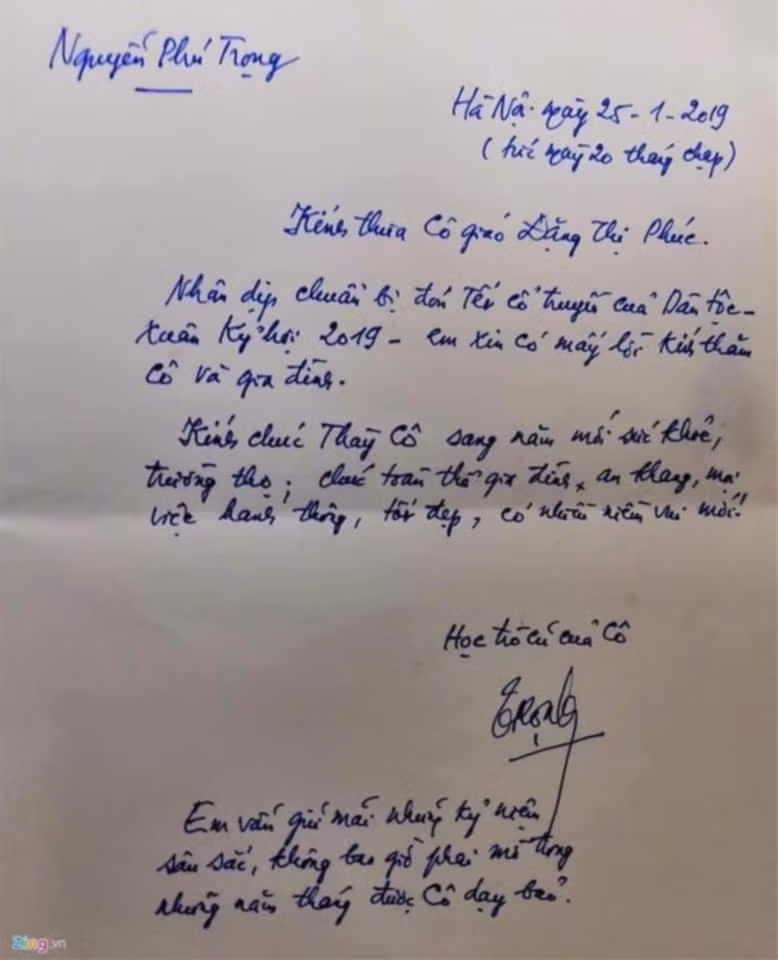 Nguyễn Phú Trọng
Hà Nội ngày 25-1-2019
(tức ngày 20 tháng chạp)
Kính thưa Cô giáo Đặng Thị Phúc.
Nhân dịp chuẩn bị đón Tết cổ truyền của Dân tộc -
Xuân Kỷ hợi 2019 - em xin có mấy lời kính thăm
Cô và gia đình.
Kính chúc Thầy Cô sang năm mới sức khoẻ,
trường thọ; chúc toàn thể gia đình an khang, mọi
việc hanh thông, tốt đẹp, có nhiều niềm vui mới!
Học trò cũ của Cô
Trọng
Em vẫn giữ mãi những kỷ niệm
sâu sắc, không bao giờ phai mờ trong
những năm tháng được Cô dạy bảo.
Zing.vn